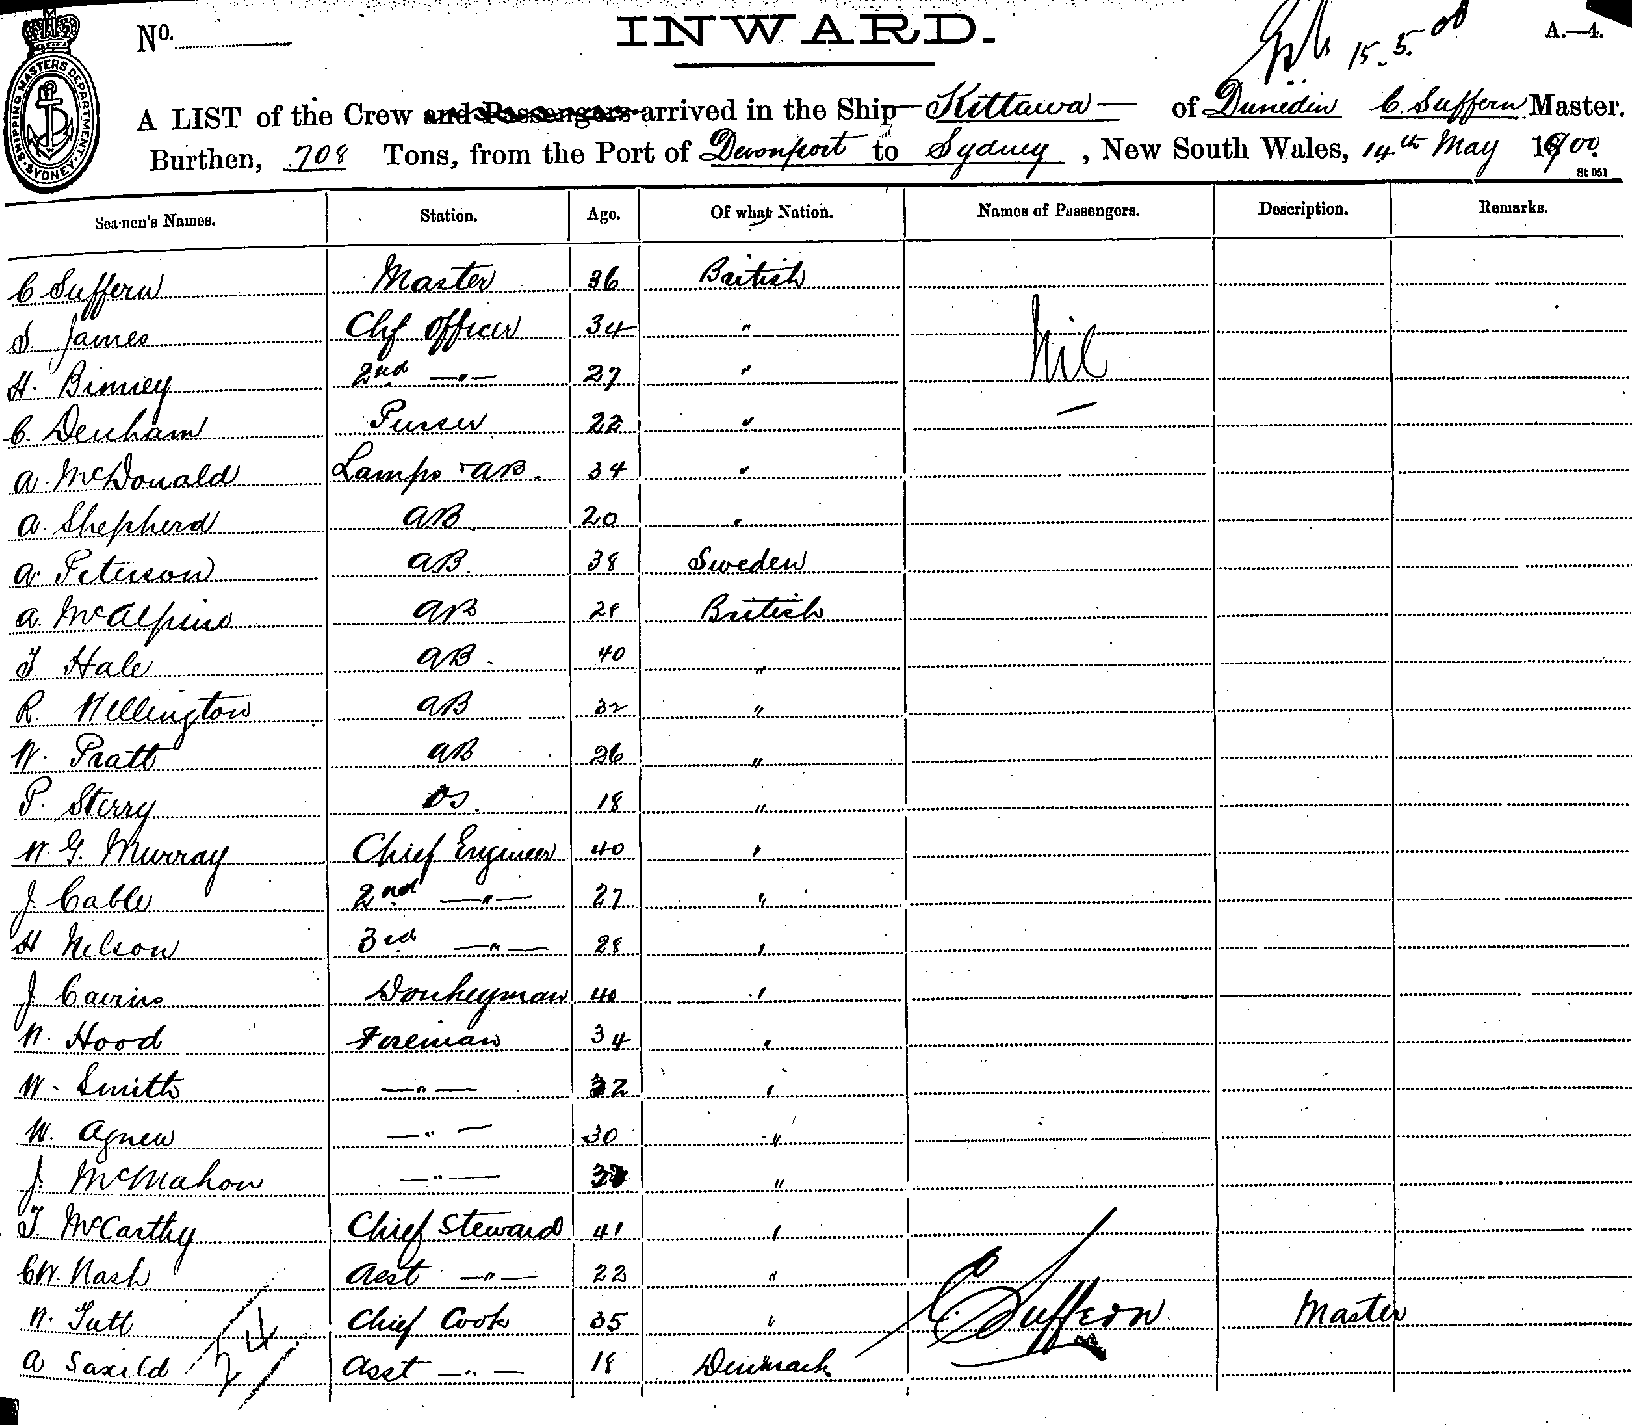 No.
INWARD.
15.5.00
A.—4.
SHIPPING MASTERS DEPARTMENT SYDNEY
A LIST of the Crew and Passengers arrived in the Ship Kittawa of Dunedin C. Suffern Master.
Burthen, 708 Tons, from the Port of Devonport to Sydney, New South Wales, 14th May 1900.
St 051
Seamen's Names. Station. Age. Of what Nation. Names of Passengers. Description. Remarks.
C Suffern Master 36 British
S James Chf Officer 34 " Nil
H. Binney 2nd —"— 27 "
C. Denham Purser 22 "
A. McDonald Lamps & AB. 34 "
A. Shepherd AB. 20 "
A Peterson AB. 38 Sweden
A McAlpine AB 28 British
T Hale AB. 40 "
R Wellington AB 32 "
W. Pratt AB 26 "
P. Sterry OS. 18 "
W. G. Murray Chief Engineer 40 "
J. Cable 2nd —"— 27 "
H Nelson 3rd —"— 28 "
J Cairns Donkeyman 40 "
W. Hood Fireman 34 "
W. Smith —"— 32 "
W. Agnew —"— 30 "
J. McMahon —"— "
T McCarthy Chief Steward 41 "
CW. Nash Asst —"— 22 "
W. Tutt Chief Cook 35 " C Suffern Master
A Saxild Asst —"— 18 Denmark
24